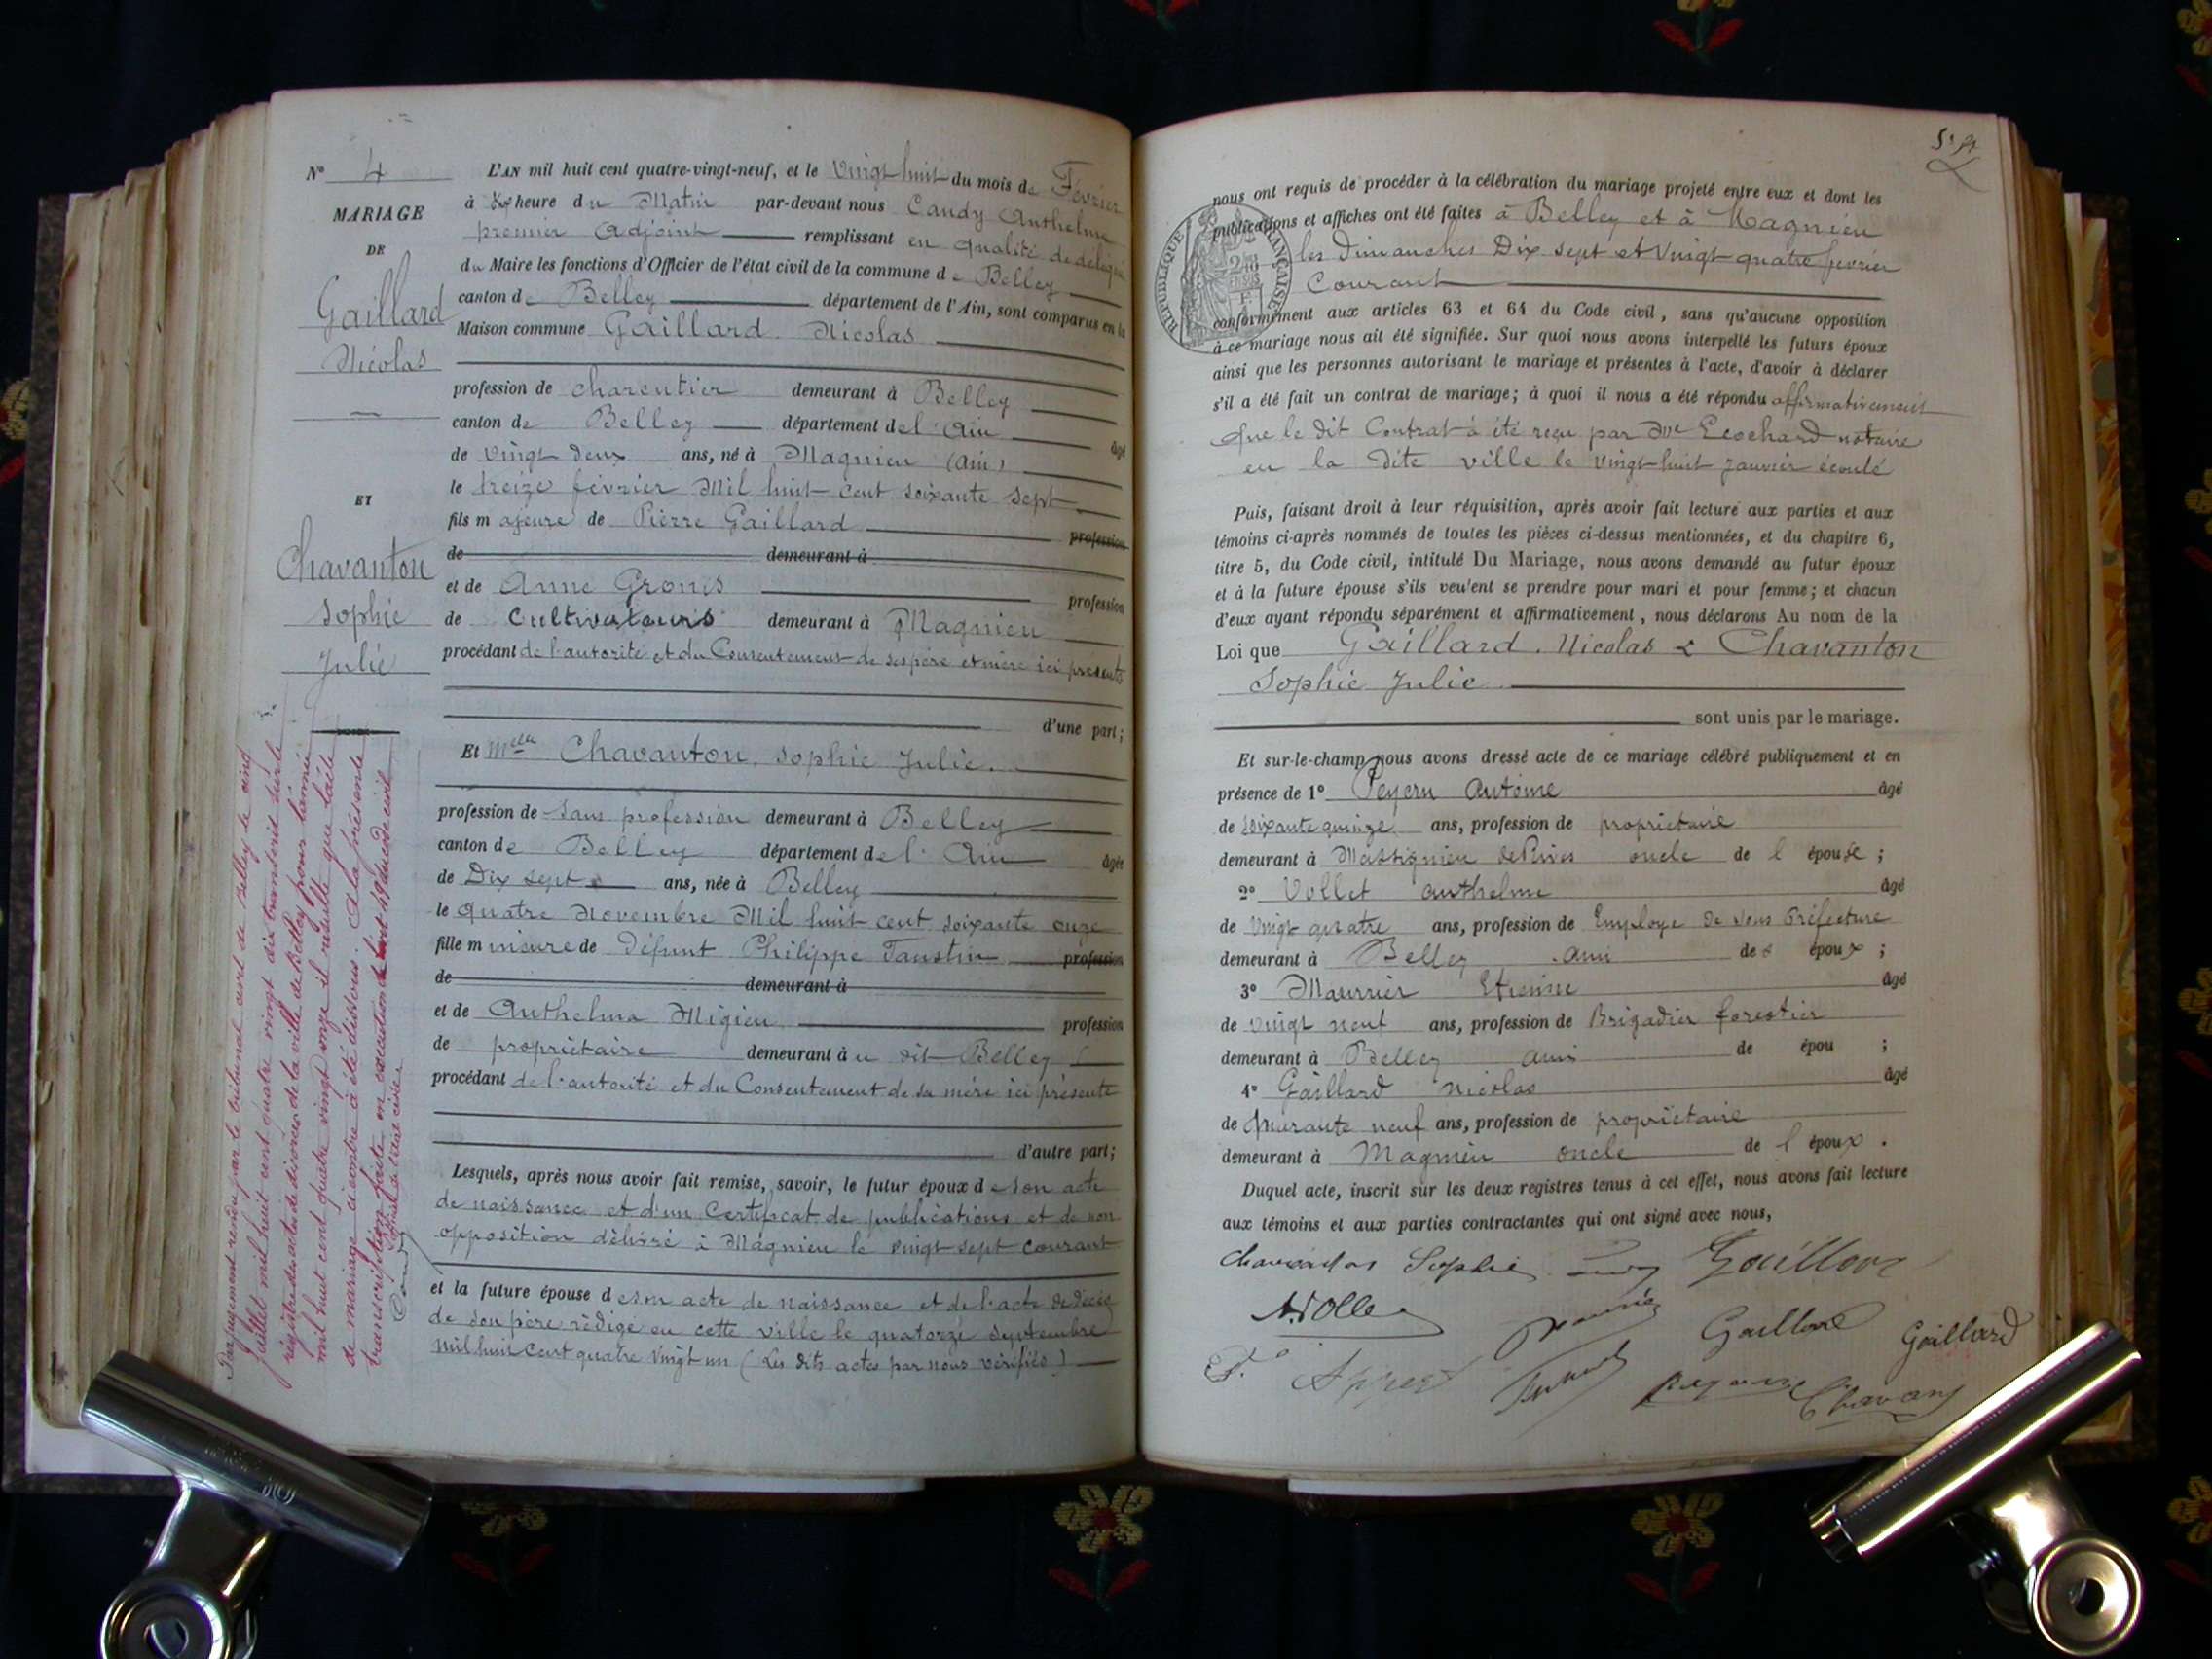 N° 4
MARIAGE
DE
Gaillard
Nicolas
ET
Chavanton
Sophie
Julie
Par jugement rendu par le tribunal civil de Belley le cinq
juillet mil huit cent quatre vingt dix transcrit sur le
registre des actes de divorces de la ville de Belley pour l'année
mil huit cent quatre vingt onze il résulte que l'acte
de mariage ci contre à été dissous. A la présente
transcription faite en exécution de l'art 49 du code civil
L'AN mil huit cent quatre-vingt-neuf, et le Vingt huit du mois de Février
à heure du Matin par-devant nous Candy Anthelme
premier Adjoint remplissant en qualité de délégué
du Maire les fonctions d'Officier de l'état civil de la commune de Belley
canton de Belley département de l'Ain, sont comparus en la
Maison commune Gaillard Nicolas
profession de charcutier demeurant à Belley
canton de Belley département de l'Ain âgé
de vingt deux ans, né à Magnieu (Ain)
le treize février Mil huit cent soixante sept
fils majeure de Pierre Gaillard profession
de demeurant à
et de Anne Gronis profession
de Cultivateurs demeurant à Magnieu
procédant de l'autorité et du Consentement de ses père et mère ici présents
d'une part;
Et Melle Chavanton, Sophie Julie.
profession de Sans profession demeurant à Belley
canton de Belley département de l'Ain âgée
de Dix sept ans, née à Belley
le quatre Novembre Mil huit cent soixante onze
fille mineure de défunt Philippe Faustin profession
de demeurant à
et de Anthelma Migieu profession
de propriétaire demeurant à u dit Belley
procédant de l'autorité et du Consentement de sa mère ici présente
d'autre part;
Lesquels, après nous avoir fait remise, savoir, le futur époux de son acte
de naissance et d'un Certificat de publications et de non
opposition délivré à Magnieu le vingt sept courant
et la future épouse de son acte de naissance et de l'acte de décès
de son père rédigé en cette ville le quatorze septembre
mil huit cent quatre vingt un (Les dits actes par nous vérifiés)
nous ont requis de procéder à la célébration du mariage projeté entre eux et dont les
publications et affiches ont été faites à Belley et à Magnieu
les Dimanches Dix sept et Vingt quatre février
Courant
RÉPUBLIQUE FRANÇAISE
conformément aux articles 63 et 64 du Code civil, sans qu'aucune opposition
à ce mariage nous ait été signifiée. Sur quoi nous avons interpellé les futurs époux
ainsi que les personnes autorisant le mariage et présentes à l'acte, d'avoir à déclarer
s'il a été fait un contrat de mariage; à quoi il nous a été répondu affirmativement
que le dit Contrat à été reçu par Me notaire
en la dite ville le vingt huit janvier écoulé
Puis, faisant droit à leur réquisition, après avoir fait lecture aux parties et aux
témoins ci-après nommés de toutes les pièces ci-dessus mentionnées, et du chapitre 6,
titre 5, du Code civil, intitulé Du Mariage, nous avons demandé au futur époux
et à la future épouse s'ils veulent se prendre pour mari et pour femme; et chacun
d'eux ayant répondu séparément et affirmativement, nous déclarons Au nom de la
Loi que Gaillard. Nicolas & Chavanton
Sophie Julie
sont unis par le mariage.
Et sur-le-champ nous avons dressé acte de ce mariage célébré publiquement et en
présence de 1° Antoine âgé
de soixante quinze ans, profession de propriétaire
demeurant à Massignieu de Rives oncle de l'épouse;
2° Vollet Anthelme âgé
de vingt quatre ans, profession de Employé de sous Préfecture
demeurant à Belley ami de s époux;
3° Maurrier Etienne âgé
de vingt neuf ans, profession de Brigadier forestier
demeurant à Belley ami de épou ;
4° Gaillard Nicolas âgé
de Quarante neuf ans, profession de propriétaire
demeurant à Magnieu oncle de l'époux.
Duquel acte, inscrit sur les deux registres tenus à cet effet, nous avons fait lecture
aux témoins et aux parties contractantes qui ont signé avec nous,
Sophie Gaillard
Gaillard Gaillard